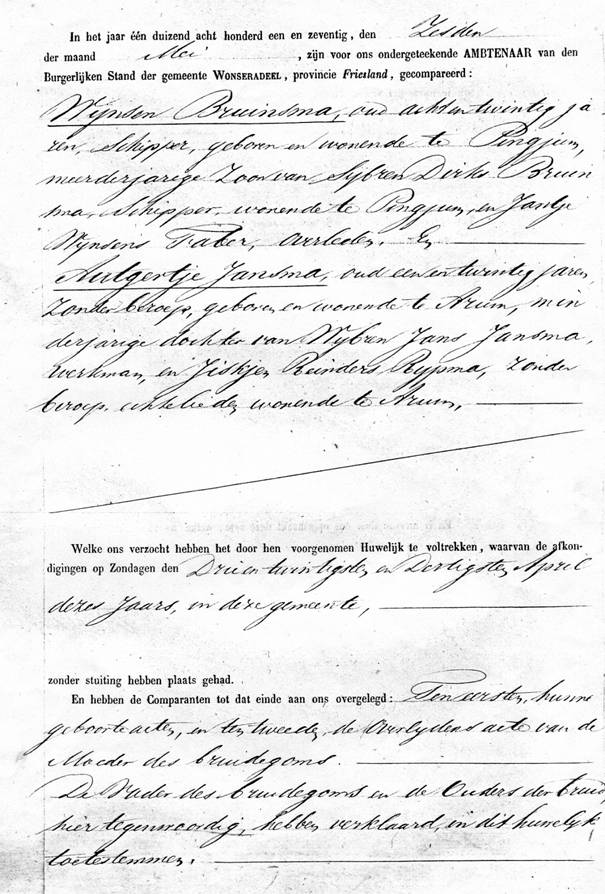 In het jaar één duizend acht honderd een en zeventig, den Zesden
der maand Mei , zijn voor ons ondergeteekende AMBTENAAR van den
Burgerlijken Stand der gemeente WONSERADEEL, provincie Friesland, gecompareerd:
Wijnsen Bruinsma, oud achtentwintig ja
ren, Schipper, geboren en wonende te Pingjum,
meerderjarige Zoon van Sybren Dirks Bruin
sma, Schipper, wonende te Pingjum, en Jantje
Wijnsens Faber, overleden. En
Autgertje Jansma, oud een en twintig jaren,
Zonder beroep, geboren en wonende te Arum, min
derjarige dochter van Wybren Jans Jansma,
werkman, en Jiskjen Reinders Rypma, Zonder
beroep, echtelieden, wonende te Arum,
Welke ons verzocht hebben het door hen voorgenomen Huwelijk te voltrekken, waarvan de afkon-
digingen op Zondagen den Drie en twintigsten en Dertigsten April
dezes Jaars, in deze gemeente,
zonder stuiting hebben plaats gehad.
En hebben de Comparanten tot dat einde aan ons overgelegd: Ten eersten, hunne
geboorteacten, en ten tweeden, de Overlydens acte van de
Moeder des bruidegoms.
De Vader des bruidegoms en de Ouders der bruid,
hier tegenwoordig, hebben verklaard, in dit huwelijk
toetestemmen.